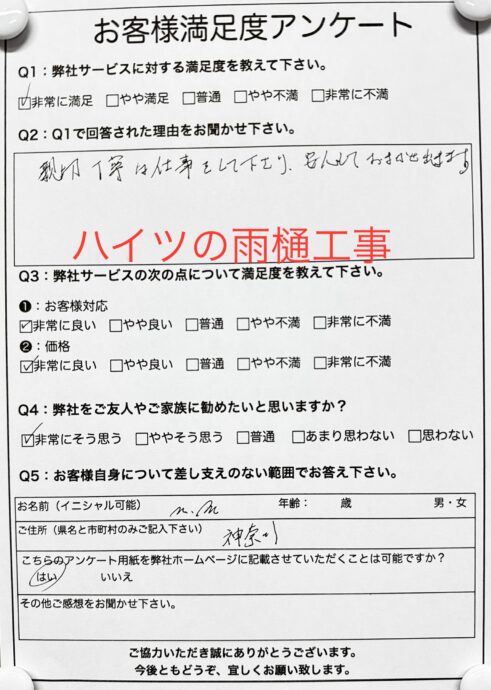 お客様満足度アンケート
Q1：弊社サービスに対する満足度を教えて下さい。
☑非常に満足 □やや満足 □普通 □やや不満 □非常に不満
Q2：Q1で回答された理由をお聞かせ下さい。
親切丁寧な仕事をして下さり、安心しておまかせ出来ます
ハイツの雨樋工事
Q3：弊社サービスの次の点について満足度を教えて下さい。
❶：お客様対応
☑非常に良い □やや良い □普通 □やや不満 □非常に不満
❷：価格
☑非常に良い □やや良い □普通 □やや不満 □非常に不満
Q4：弊社をご友人やご家族に勧めたいと思いますか？
☑非常にそう思う □ややそう思う □普通 □あまり思わない □思わない
Q5：お客様自身について差し支えのない範囲でお答え下さい。
お名前（イニシャル可能） n.m 年齢： 歳 男・女
ご住所（県名と市町村のみご記入下さい） 神奈川
こちらのアンケート用紙を弊社ホームページに記載させていただくことは可能ですか？
はい いいえ
その他ご感想をお聞かせ下さい。
ご協力いただき誠にありがとうございます。
今後ともどうぞ、宜しくお願い致します。